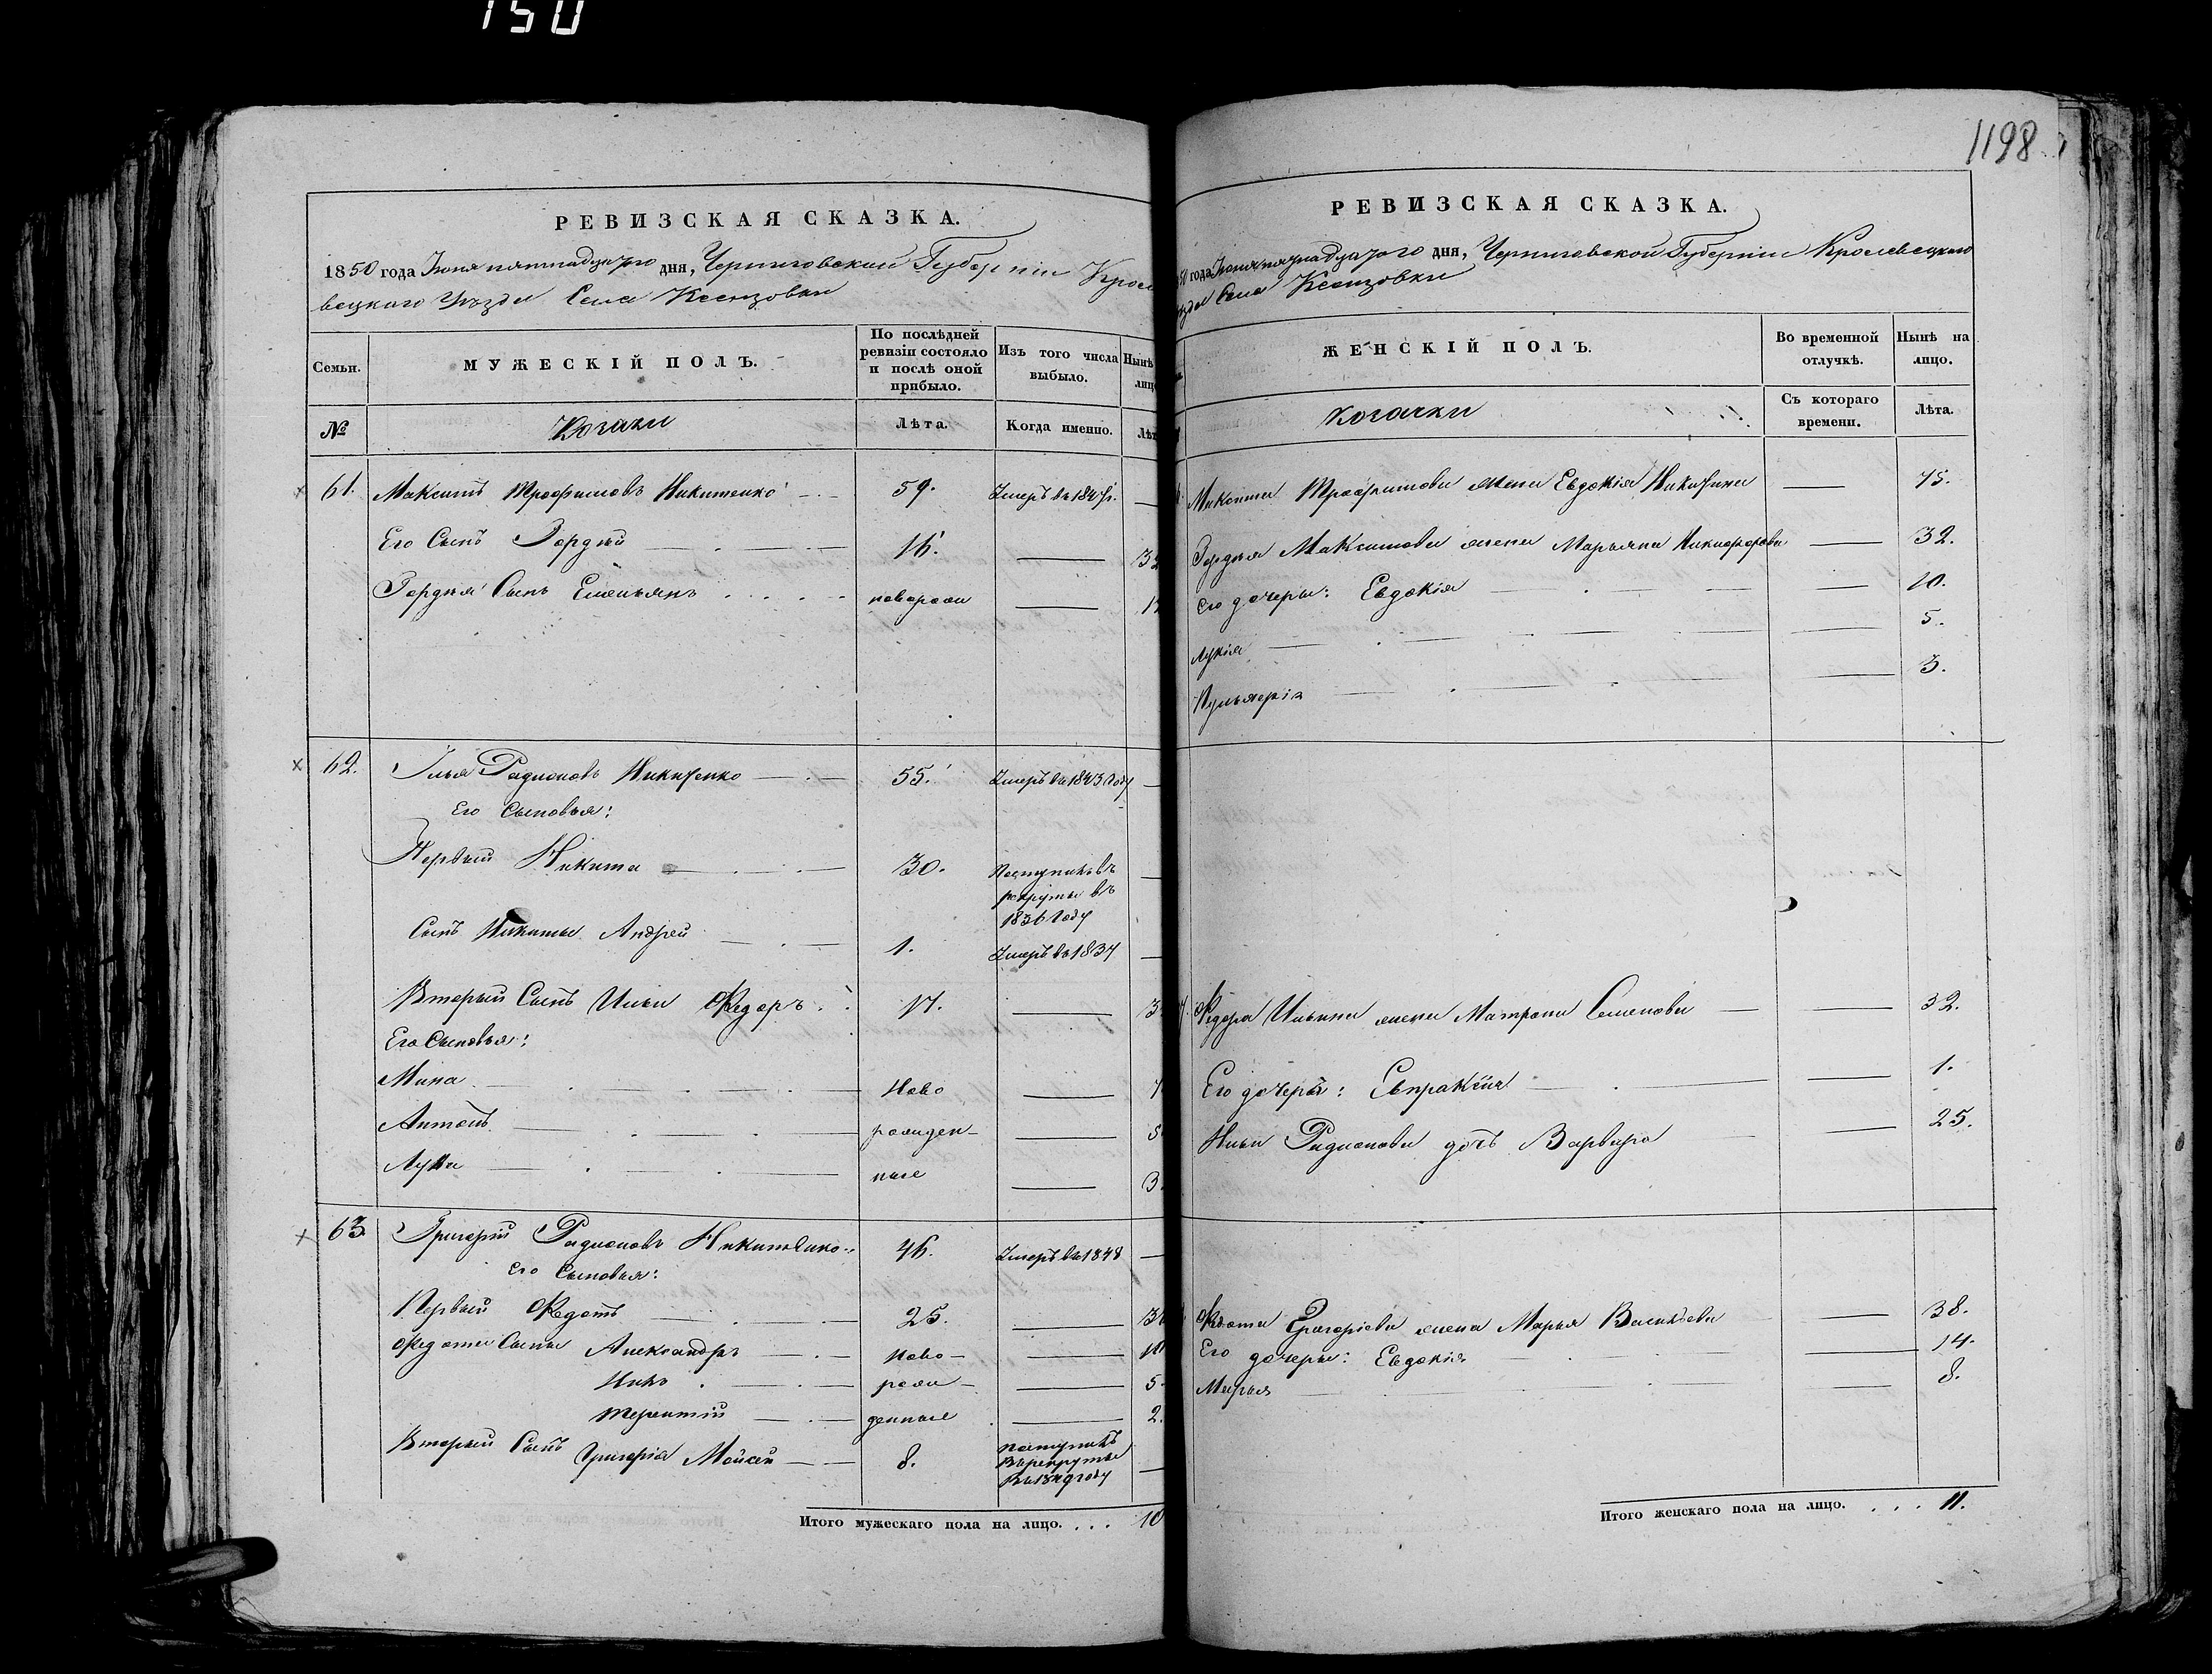 150
1198
РЕВИЗСКАЯ СКАЗКА.
1850 года Іюня пятнадцатого дня, Черниговской Губерніи Кроле
вецкаго Уѣзда Села Ксензовки
Семьи.
МУЖЕСКІЙ ПОЛЪ.
По послѣдней ревизіи состояло и послѣ оной прибыло.
Изъ того числа выбыло.
Нынѣ
лицо
№
Козаки
Лѣта.
Когда именно.
Лѣт
61. Максимъ Трофимовъ Никитенко 59. Умеръ въ 184 г. —
Его Сынъ Гордѣй 16. — 32
Гордѣя Сынъ Емельянъ новорожд —
62. Илья Радионовъ Никитенко 55. Умеръ въ 1843 году —
Его Сыновья:
Первый Никита 30. Поступилъ въ рекруты въ 1836 году —
Сынъ Никиты Андрей 1. Умеръ въ 1834 —
Вторый Сынъ Ильи Федоръ 17. — 3
Его Сыновья:
Мина ново —
Антонъ рожден- — 5
Лука ные — 3.
63. Григорій Радионовъ Никитенко 46. Умеръ въ 1848 —
Его Сыновья:
Первый Федотъ 25. —
Федота Сыны Александръ ново- —
Никъ рож- — 5.
Терентій денные — 2.
Вторый Сынъ Григорія Мойсей 8. поступилъ въ рекруты году —
Итого мужескаго пола на лицо. . . . 10
РЕВИЗСКАЯ СКАЗКА.
50 года Іюня пятнадцатого дня, Черниговской Губерніи Кролевецкаго
ѣзда Села Ксензовки
ЖЕНСКІЙ ПОЛЪ.
Во временной отлучкѣ.
Нынѣ на лицо.
Козачки
Съ котораго времени.
Лѣта.
Максима Трофимова жена Евдокія Никитина — 75.
Гордѣя Максимова жена Марьяна Никифорова — 32.
Его дочеры: Евдокія — 10.
Лукія — 5.
Пульхерія — 3.
Федора Ильина жена Матрона Семенова — 32.
Его дочеры: Евпракsія — 1.
Ильи Радионова дочь Варвара — 25.
Федота Григоріева жена Марья Васильева — 38.
Его дочеры: Евдокія — 14.
Марья — 8.
Итого женскаго пола на лицо. . . . 11.